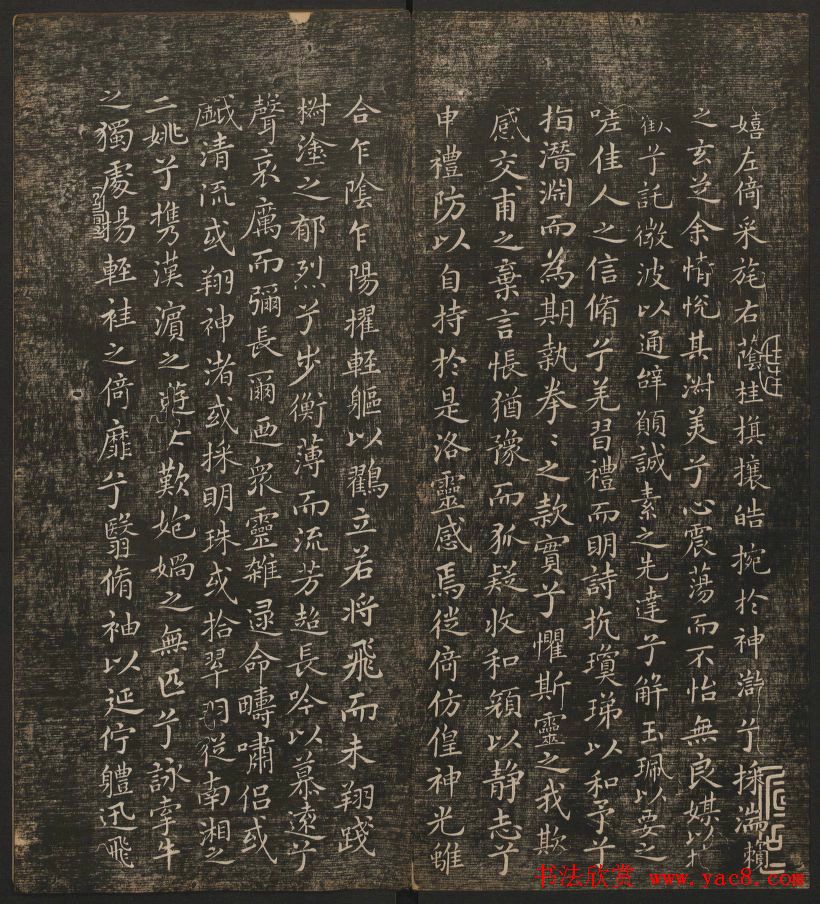 嬉左倚采旄右蔭桂旗攘皓捥於神滸兮採湍瀨
之玄芝余情悅其淑美兮心震蕩而不怡無良媒以
歡兮託微波以通辭願誠素之先達兮解玉珮以要之
嗟佳人之信脩兮羌習禮而明詩抗瓊珶以和予兮
指潛淵而為期執拳〻之款實兮懼斯靈之我欺
感交甫之棄言悵猶豫而狐疑收和顏以静志兮
申禮防以自持於是洛靈感焉徙倚仿偟神光離
合乍陰乍陽擢輕軀以鶴立若將飛而未翔踐
椒塗之郁烈兮步衡薄而流芳超長吟以慕遠兮
聲哀厲而彌長爾迺衆靈雜遝命疇嘯侶或
戲清流或翔神渚或採明珠或拾翠羽從南湘之
二姚兮攜漢濱之遊女歎匏媧之無匹兮詠牽牛
之獨處揚輕袿之倚靡兮翳脩袖以延佇軆迅飛
书法欣赏 www.yac8.com